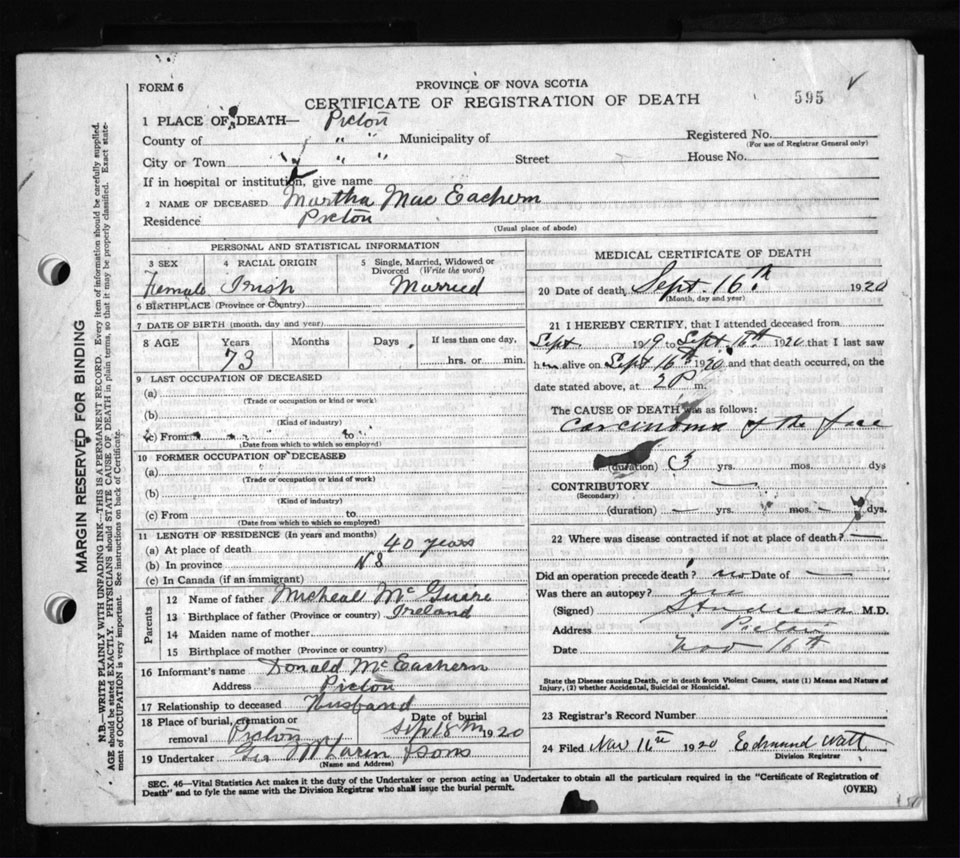 FORM 6
PROVINCE OF NOVA SCOTIA
CERTIFICATE OF REGISTRATION OF DEATH
595
1 PLACE OF DEATH— Pictou
County of " " Municipality of Registered No.
(For use of Registrar General only)
City or Town " " Street House No.
If in hospital or institution, give name
2 NAME OF DECEASED Martha Mac Eachern
Residence Pictou
(Usual place of abode)
PERSONAL AND STATISTICAL INFORMATION
3 SEX 4 RACIAL ORIGIN 5 Single, Married, Widowed or Divorced (Write the word)
Female Irish Married
6 BIRTHPLACE (Province or Country)
7 DATE OF BIRTH (month, day and year)
8 AGE Years Months Days If less than one day,
73 hrs. or min.
9 LAST OCCUPATION OF DECEASED
(a)
(Trade or occupation or kind or work)
(b)
(Kind of industry)
(c) From to
(Date from which to which so employed)
10 FORMER OCCUPATION OF DECEASED
(a)
(Trade or occupation or kind of work)
(b)
(Kind of Industry)
(c) From to
(Date from which to which so employed)
11 LENGTH OF RESIDENCE (In years and months)
(a) At place of death 40 years
(b) In province NS
(c) In Canada (if an immigrant)
Parents
12 Name of father Micheal McGuire
13 Birthplace of father (Province or country) Ireland
14 Maiden name of mother
15 Birthplace of mother (Province or country)
16 Informant's name Donald McEachern
Address Pictou
17 Relationship to deceased Husband
18 Place of burial, cremation or removal Pictou Date of burial Sept 18th 1920
19 Undertaker Sons
(Name and Address)
MEDICAL CERTIFICATE OF DEATH
20 Date of death Sept. 16th 1920
(Month, day and year)
21 I HEREBY CERTIFY, that I attended deceased from
Sept 1919 to Sept 16th 1920 that I last saw
her alive on Sept 16th 1920 and that death occurred, on the
date stated above, at 2 P m.
The CAUSE OF DEATH was as follows:
Carcinoma of the face
(duration) 3 yrs. mos. dys
CONTRIBUTORY —
(Secondary)
(duration) — yrs. mos. — dys.
22 Where was disease contracted if not at place of death? —
Did an operation precede death? no Date of —
Was there an autopsy?
(Signed) M.D.
Address Pictou
Date Nov 16th
State the Disease causing Death, or in death from Violent Causes, state (1) Means and Nature of
Injury, (2) whether Accidental, Suicidal or Homicidal.
23 Registrar's Record Number
24 Filed Nov 16th 1920 Edmund Watt
Division Registrar
SEC. 46—Vital Statistics Act makes it the duty of the Undertaker or person acting as Undertaker to obtain all the particulars required in the "Certificate of Registration of
Death" and to fyle the same with the Division Registrar who shall issue the burial permit. (OVER)
MARGIN RESERVED FOR BINDING
N.B.—WRITE PLAINLY WITH UNFADING INK—THIS IS A PERMANENT RECORD. Every item of information should be carefully supplied.
AGE should be stated EXACTLY. PHYSICIANS should STATE CAUSE OF DEATH in plain terms, so that it may be properly classified. Exact state-
ment of OCCUPATION is very important. See instructions on back of Certificate.